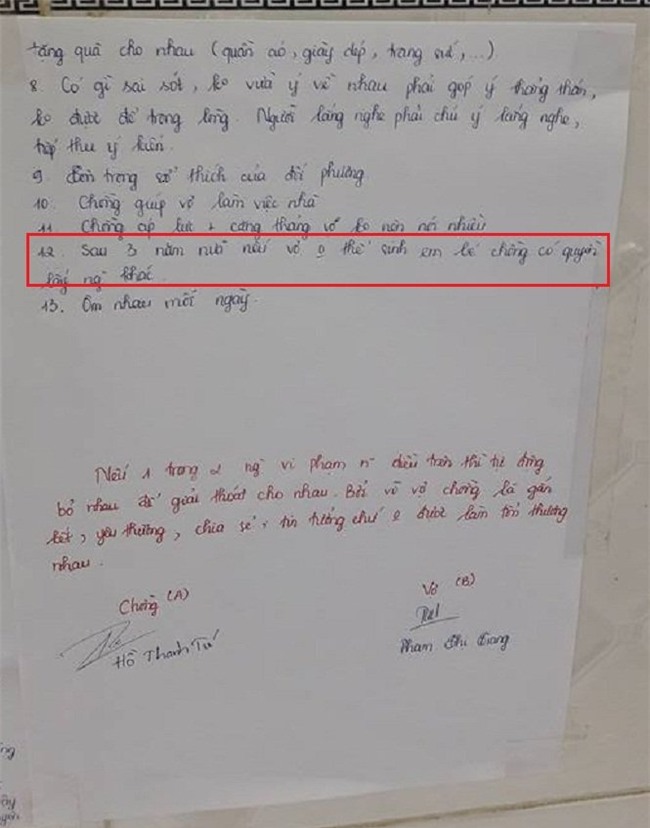 tặng quà cho nhau (quần áo, giày dép, trang sức,...)
8. Có gì sai sót, ko vừa ý về nhau phải góp ý thẳng thắn,
ko được để trong lòng. Người lắng nghe phải chú ý lắng nghe,
tiếp thu ý kiến.
9. Tôn trọng sở thích của đối phương
10. Chồng giúp vợ làm việc nhà
11. Chồng áp lực + căng thẳng vợ ko nên nói nhiều
12. Sau 3 năm nữa nếu vợ o thể sinh em bé chồng có quyền
lấy ng khác.
13. Ôm nhau mỗi ngày.
Nếu 1 trong 2 ng vi phạm n~ điều trên thì tự động
bỏ nhau để giải thoát cho nhau. Bởi vì vợ chồng là gắn
kết, yêu thương, chia sẻ, tin tưởng chứ o được làm tổn thương
nhau.
Chồng (A)
Vợ (B)
Hồ Thanh Tú
Phạm Giang